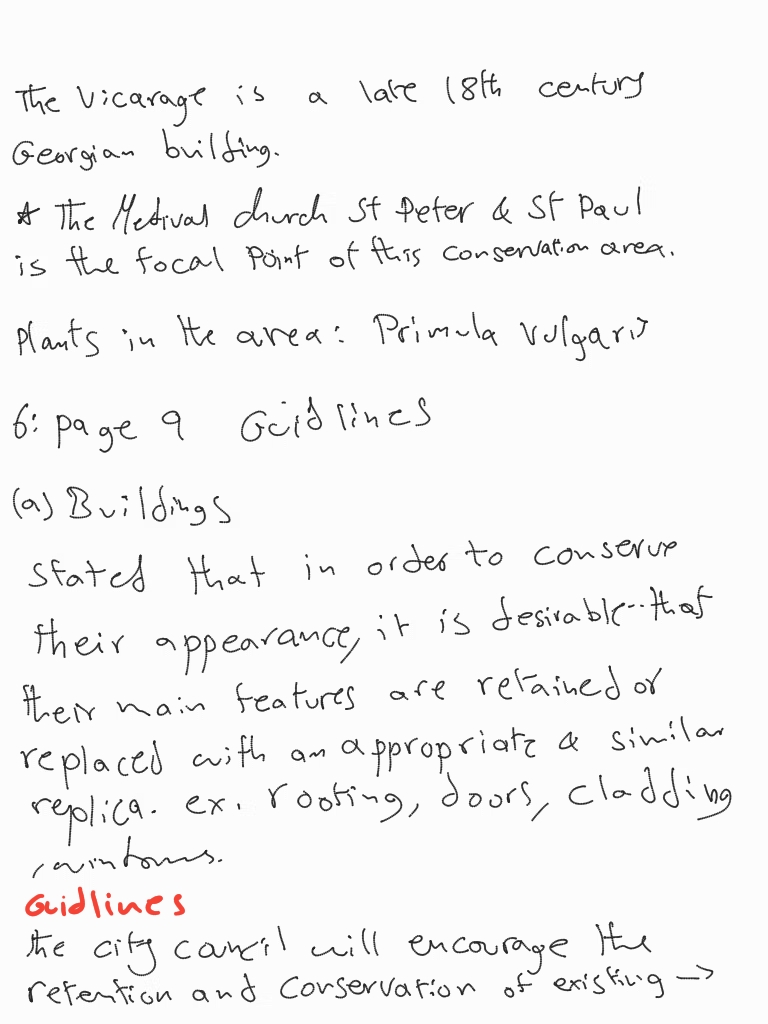 The Vicarage is a late 18th century
Georgian building.
* The Medival church St Peter & St Paul
is the focal Point of this conservation area.
Plants in the area: Primula Vulgaris
6: page 9 Guidlines
(a) Buildings
Stated that in order to conserve
their appearance, it is desirable... that
their main features are retained or
replaced with an appropriate & similar
replica. ex. roofing, doors, cladding
, windows.
Guidlines
the city council will encourage the
retention and conservation of existing →